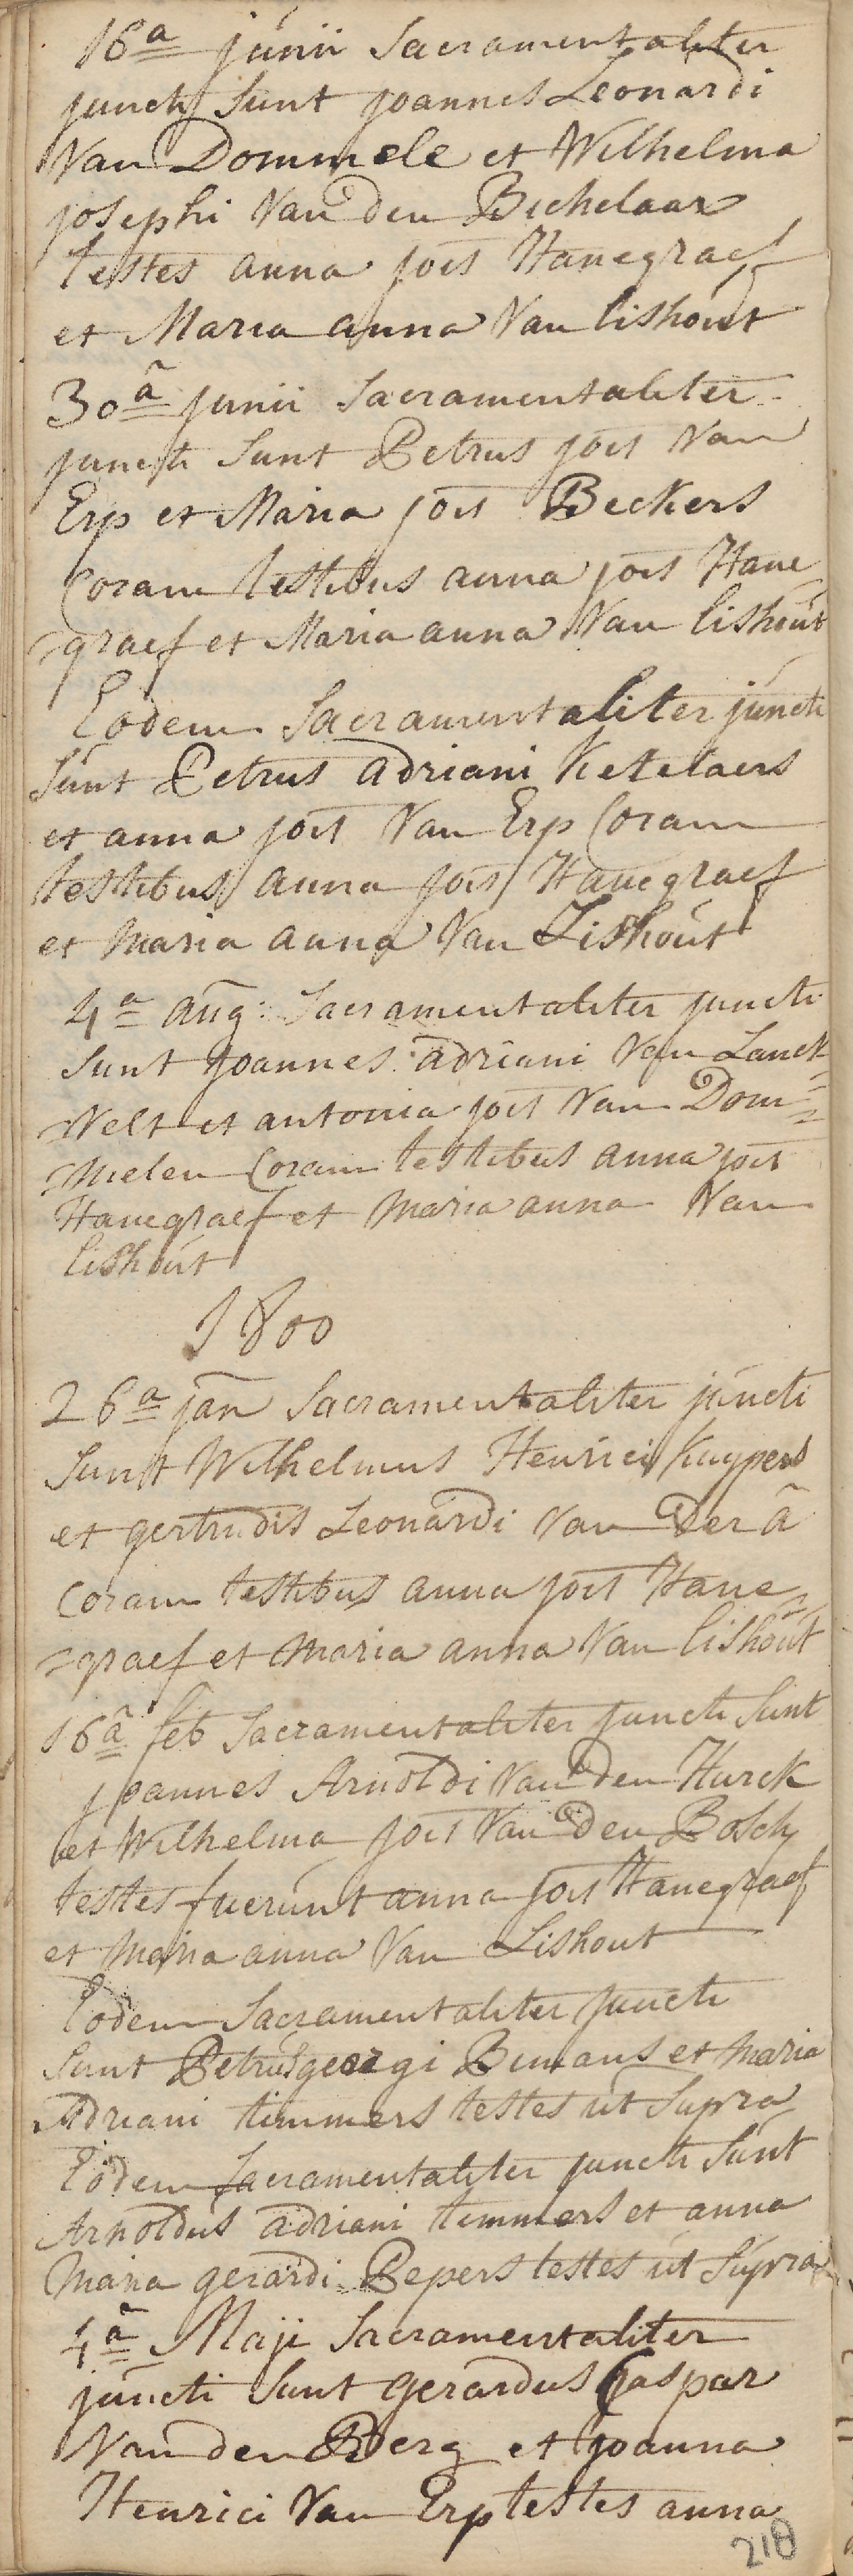 16a junii Sacramentaliter
juncti Sunt joannes Leonardi
Van Dommele et Wilhelma
josephi Van den Bichelaar
testes anna jois Hanegraef
et Maria anna Van lishout
30ã junii Sacramentaliter
juncti Sunt Petrus jois Van
Erp et Maria jois Beckers
Coram testibus anna jois Hane
=graef et Maria anna Van lishout
Eodem Sacramentaliter juncti
Sunt Petrus adriani Ketelaers
et anna jois Van Erp Coram
testibus anna jois Hanegraef
et Maria anna Van Lishout
4a aug: Sacramentaliter juncti
Sunt joannes adriani Van Lanck=
=Velt et antonia jois Van Dom=
=melen Coram testibus anna jois
Hanegraef et Maria anna Van
lishout
1800
26a jan Sacramentaliter juncti
Sunt Wilhelmus Henrici Kuypers
et gertrudis Leonardi Van Der ã
Coram testibus anna jois Hane=
=graef et Maria anna Van lishout
16ã feb Sacramentaliter juncti Sunt
joannes Arnoldi Van den Hurck
et Wilhelma jois Van den Bosch
testes fuerunt anna jois Hanegraef
et Maria anna Van Lishout
Eodem Sacramentaliter juncti
Sunt Petrus georgi Bimans et Maria
Adriani timmers testes ut Supra
Eodem Sacramentaliter juncti Sunt
Arnoldus adriani timmers et anna
Maria gerardi Pepers testes ut Supra
4ã Maji Sacramentaliter
juncti Sunt gerardus Caspar
Van den Berg et joanna
Henrici Van Erp testes anna
218